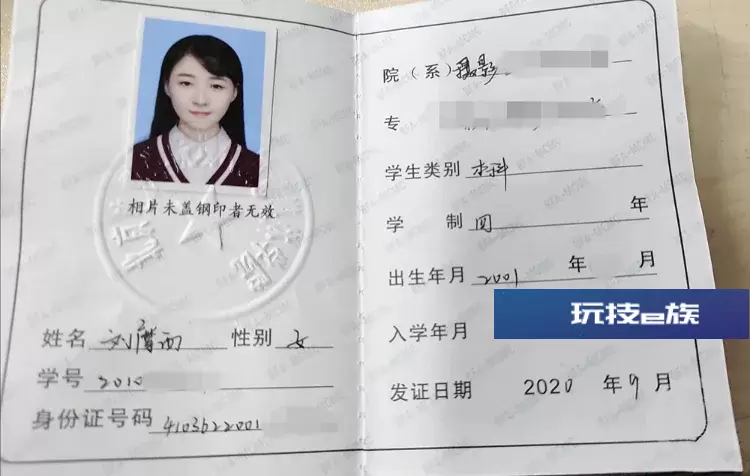 相片未盖钢印者无效
北京
姓名 刘摩西 性别 女
学号 2010
身份证号码 4103622001
院（系）摄影
专
学生类别 本科
学 制 四 年
出生年月 2001 年 月
玩技e族
入学年月
发证日期 2020 年 9 月